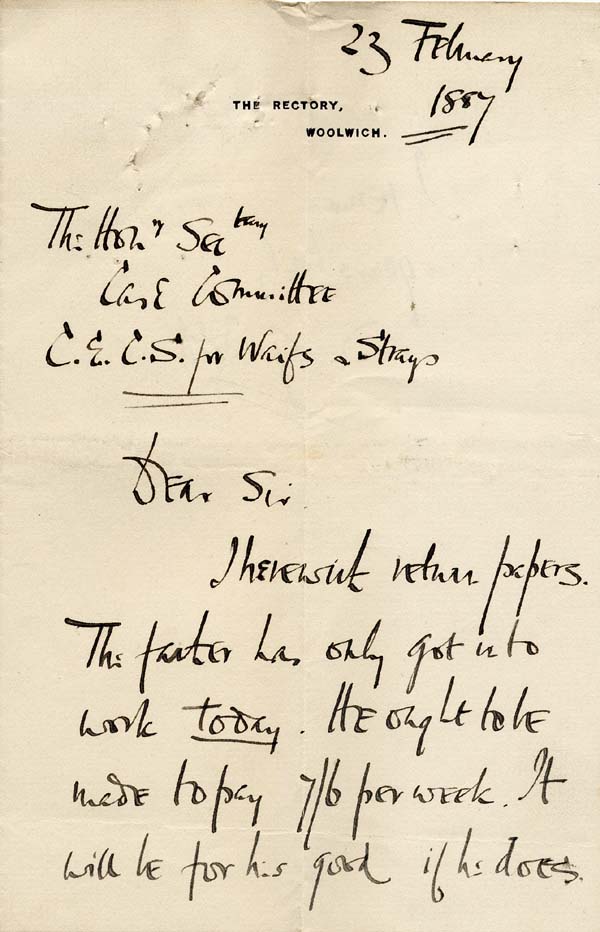 23 February
1887
THE RECTORY,
WOOLWICH.
The Hon'y Sectary
Case Committee
C.E.C.S. for Waifs & Strays
Dear Sir
I herewith return papers.
The father has only got into
work today. He ought to be
made to pay 7/6 per week. It
will be for his good if he does.